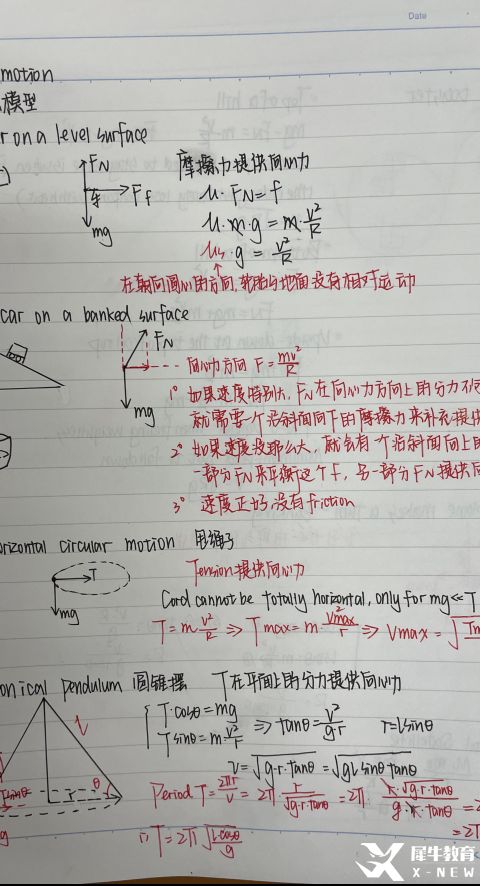 Date
motion
模型
r on a level surface
FN
Ff
mg
摩擦力提供向心力
μ·FN=f
μ·m·g=m·v²/R
μs·g=v²/R
在朝向圆心的方向,轮胎与地面没有相对运动
car on a banked surface
FN
mg
向心力方向 F=mv²/R
1° 如果速度特别大, FN在向心力方向上的分力不
就需要一个沿斜面向下的摩擦力来补充提供
2° 如果速度没那么大, 就会有一个沿斜面向上的
一部分FN来平衡这个f, 另一部分FN提供向
3° 速度正好,没有friction
orizontal circular motion 甩绳子
T
mg
Tension提供向心力
Cord cannot be totally horizontal, only for mg≪T
T=m v²/R ⇒ Tmax=m·v²max/r ⇒ Vmax=√
onical pendulum 圆锥摆 T在平面上的分力提供向心力
T·cosθ=mg
Tsinθ=m·v²/r
⇒ tanθ=v²/g·r r=lsinθ
v=√g·r·tanθ=√gl sinθ tanθ
l
θ
Tsinθ
Period T=2πr/v=2π r/√g·r·tanθ=2π r·√g·r·tanθ/g·r·tanθ
∴ T=2π√l·cosθ/g
犀牛教育
X-NEW